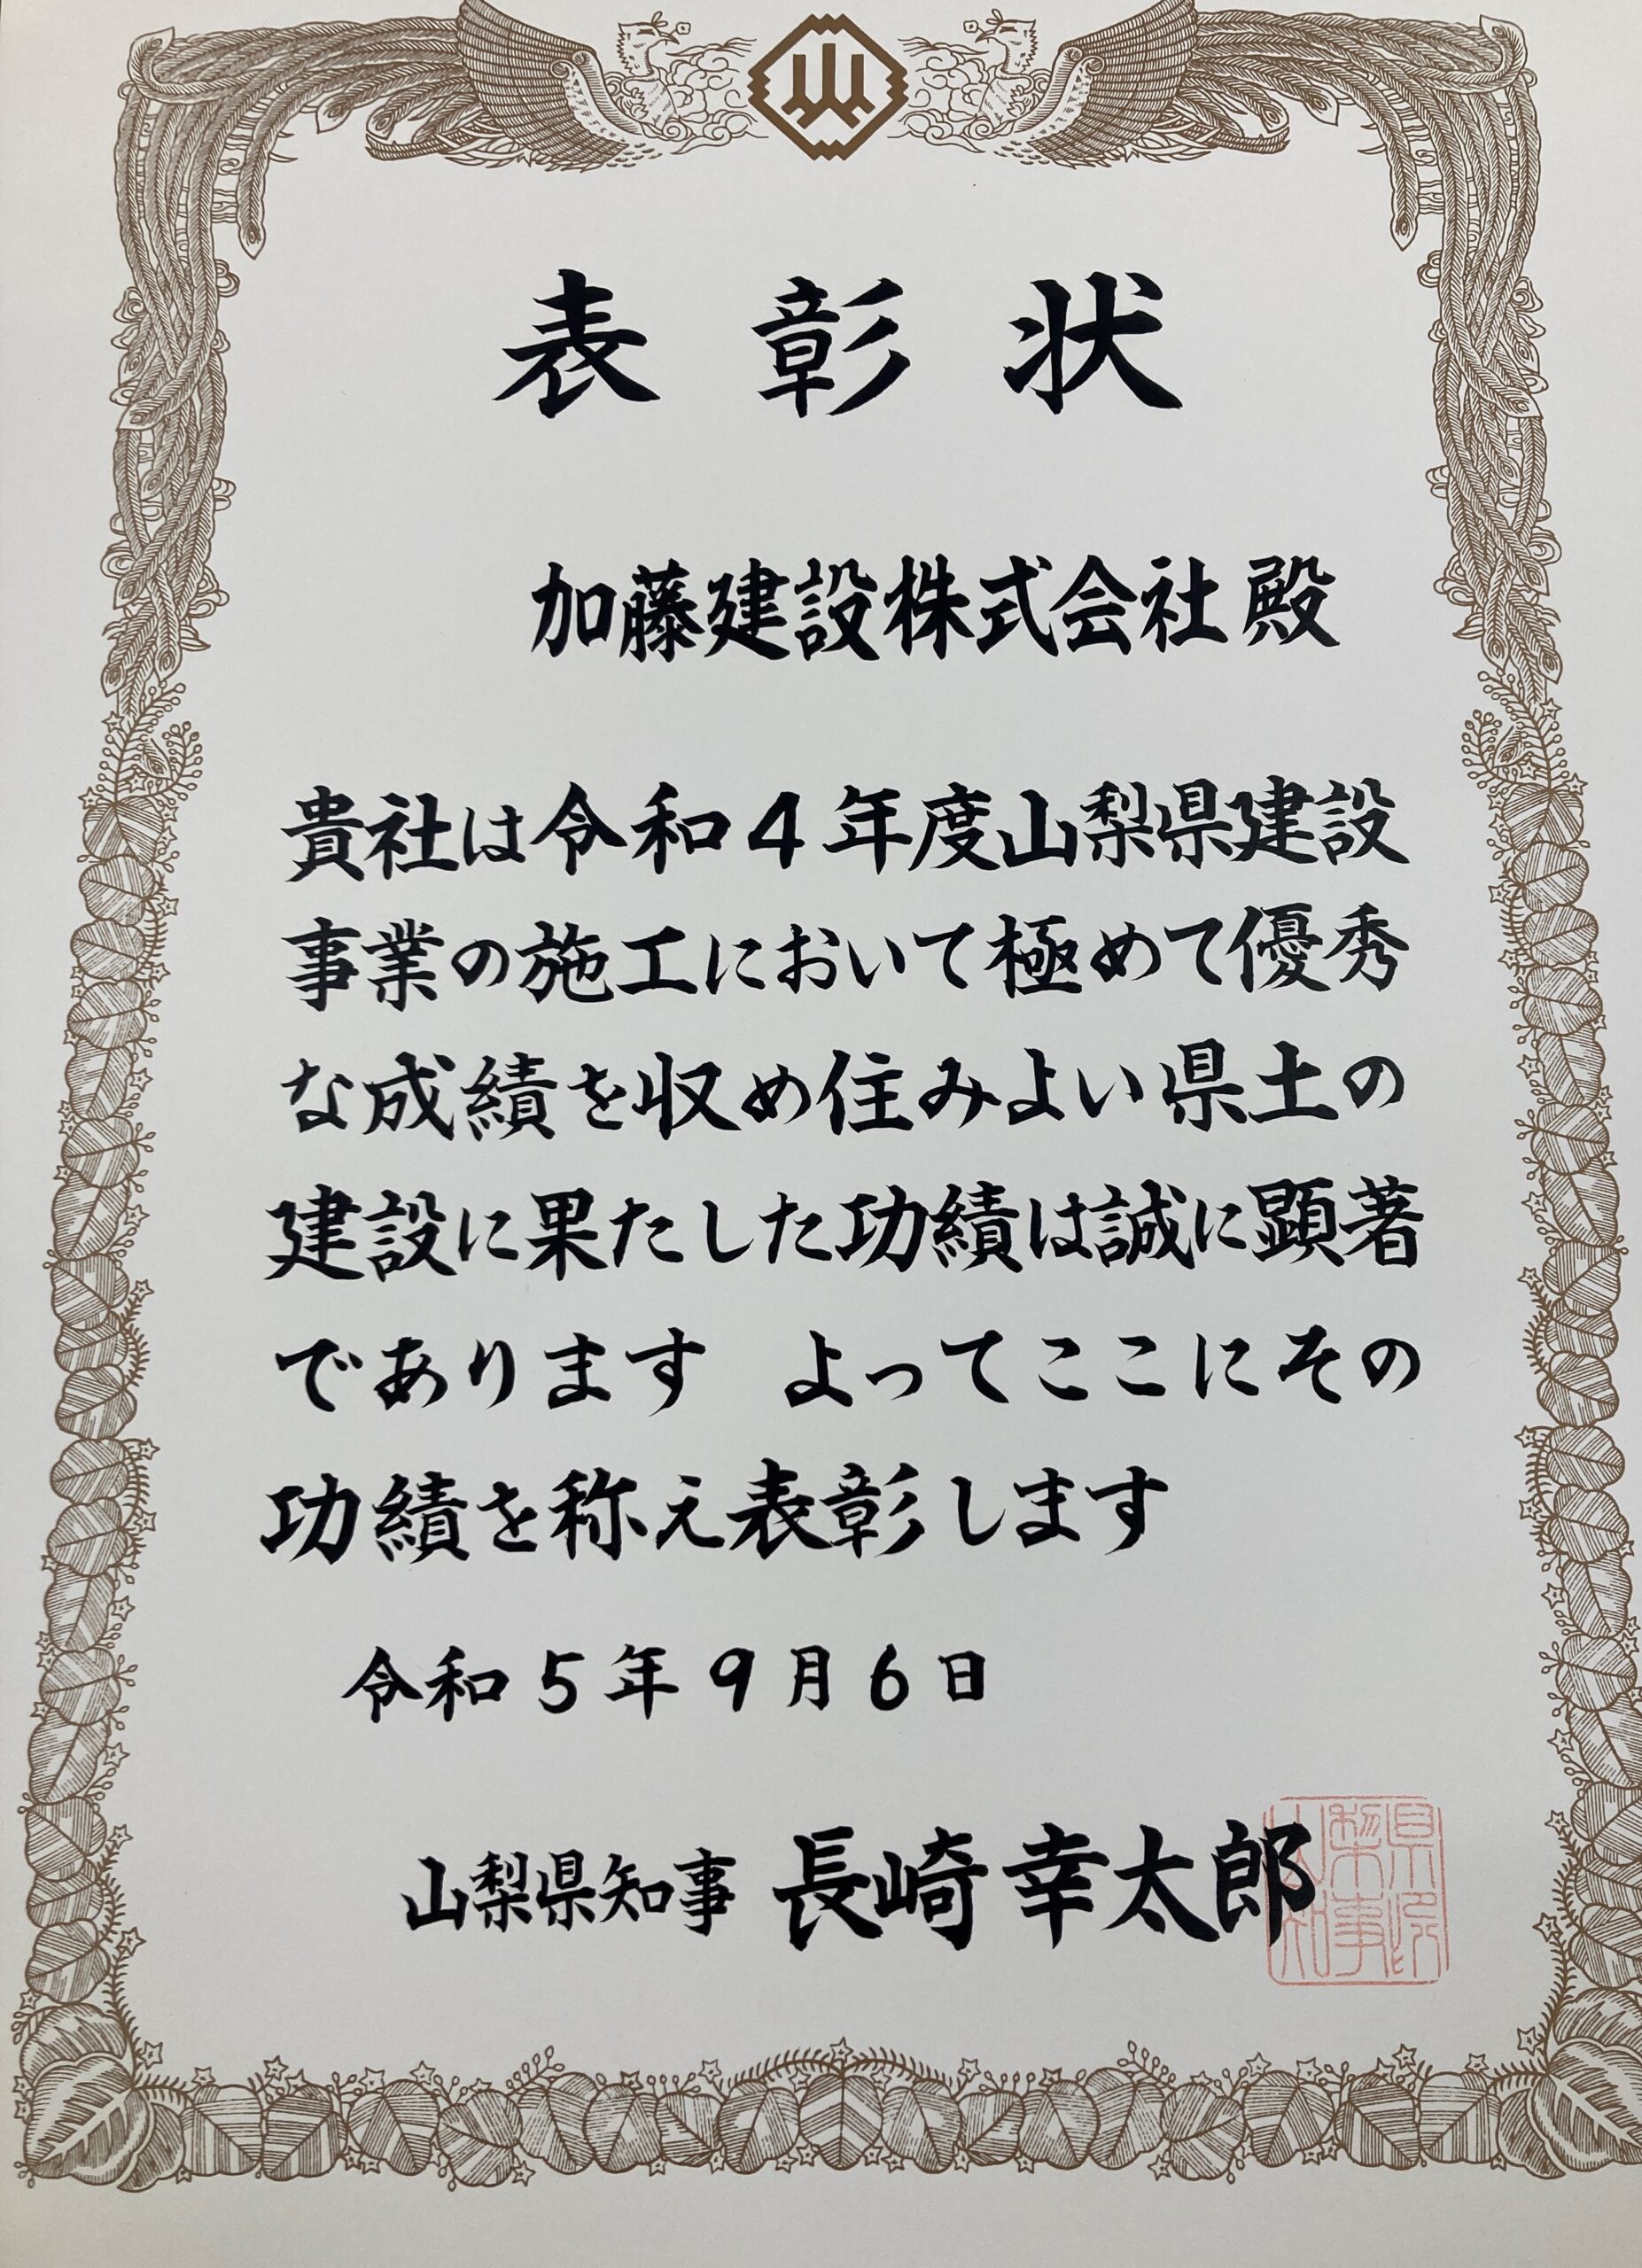 表彰状
加藤建設株式会社 殿
貴社は令和4年度山梨県建設
事業の施工において極めて優秀
な成績を収め住みよい県土の
建設に果たした功績は誠に顕著
であります　よってここにその
功績を称え表彰します
令和5年9月6日
山梨県知事 長崎幸太郎